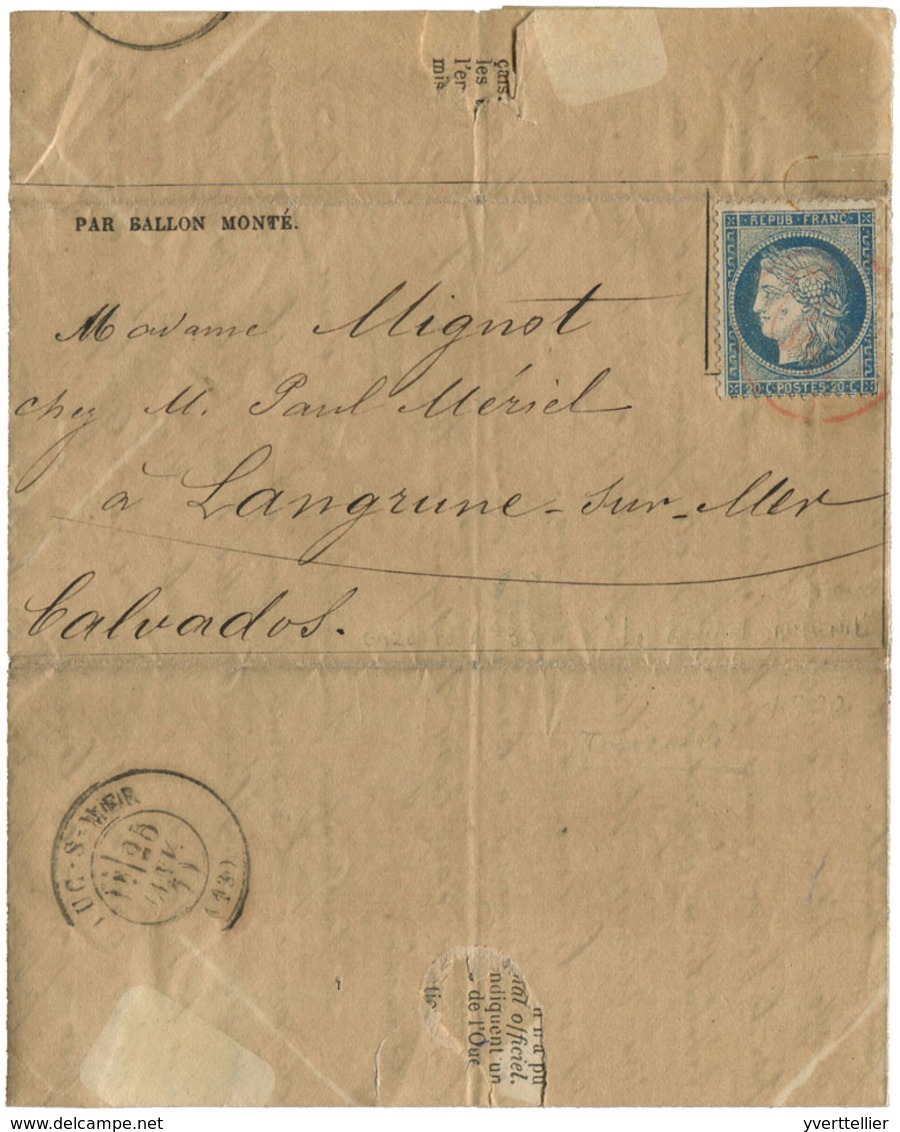 çais.
les
l'er
mis
PAR BALLON MONTÉ.
REPUB·FRANC·
20·C·POSTES·20·C·
Madame Mignot
chez M. Paul Mériel
à Langrune-sur-Mer
Calvados.
LUC-S-MER
25
JANV.
71
(13)
nna pu
nal officiel.
ndiquent un
de l'Oue
tic
yverttellier